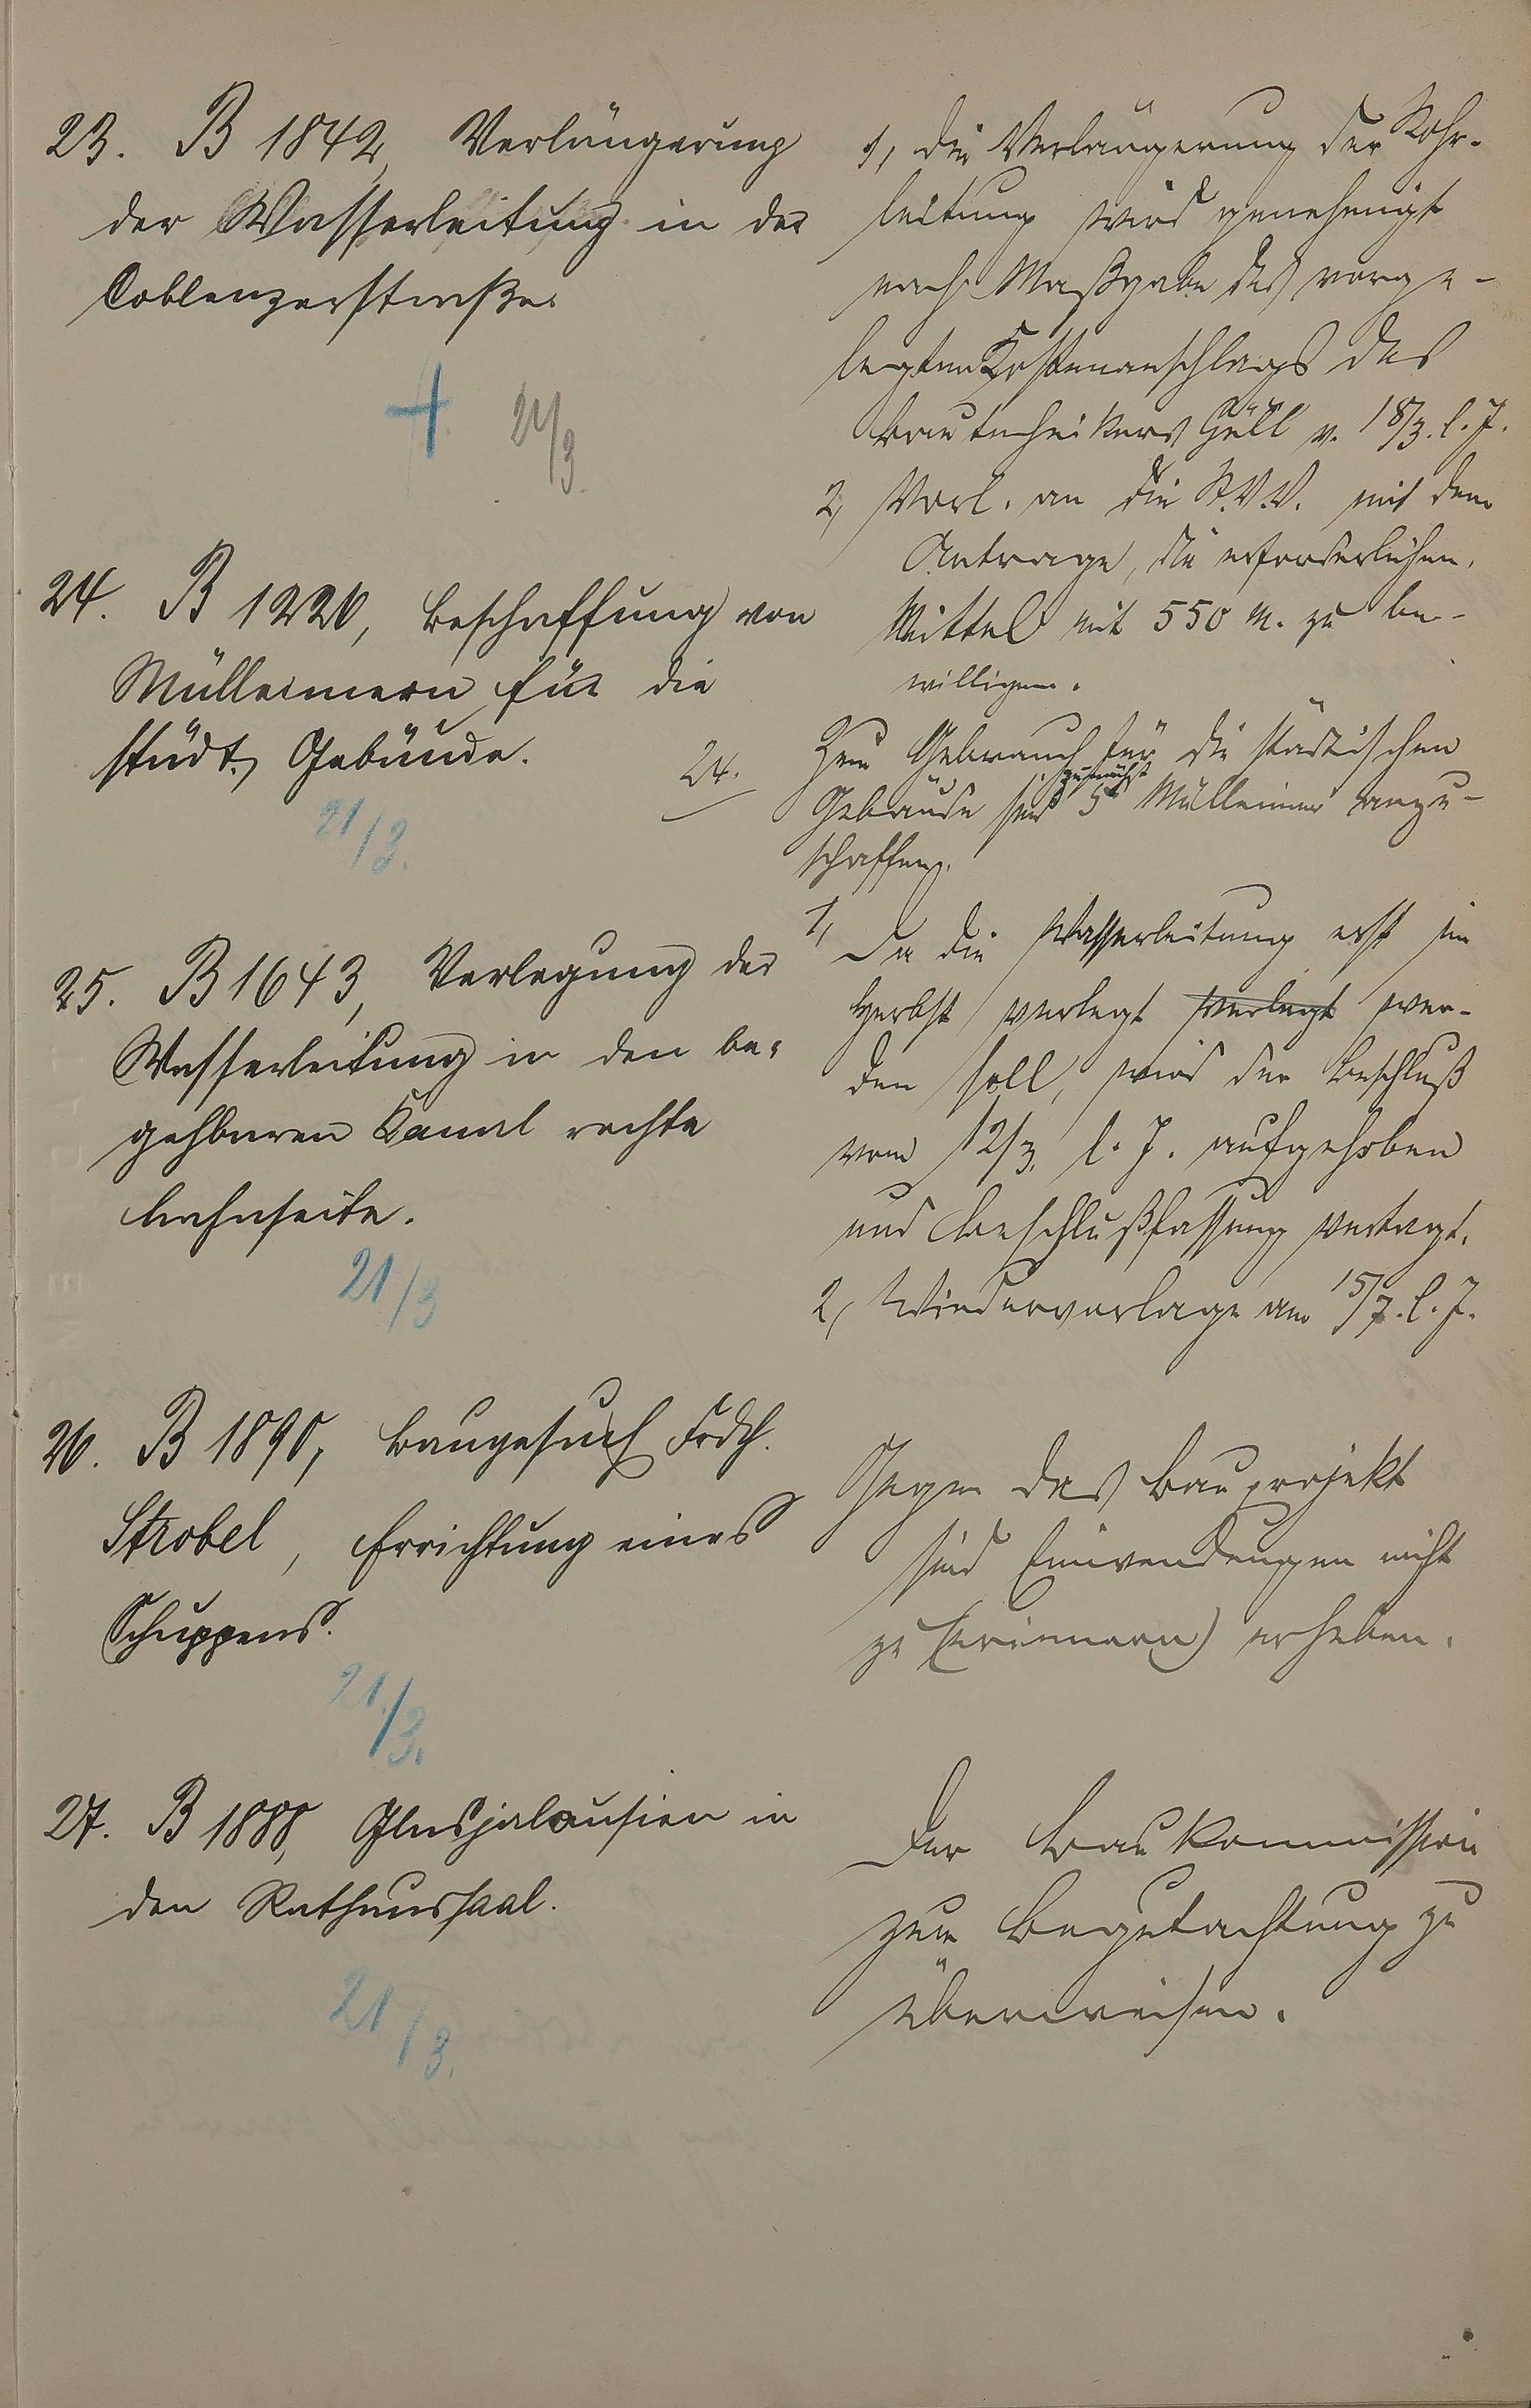 23. B 1842, Verlängerung
der Wasserleitung in der
Coblenzerstraße.
+ 21/3.
1, Die Verlängerung der Rohr-
leitung wird genehmigt
nach Maßgabe des vorge-
legten Kostenanschlags des
Bautechnikers Güll v. 18/3. l. J.
2, Vorl. an die St.V.V. mit dem
Antrage, die erforderlichen
Mittel mit 550 M. zu be-
willigen.
24. B 1226, Beschaffung von
Mülleimern für die
städt. Gebäude.
21/3.
24.
Zum Gebrauch für die städtischen
zunächst
Gebäude sind 5 Mülleimer anzu-
schaffen.
25. B 1643, Verlegung der
Wasserleitung in den be-
gehbaren Kanal rechte
Lahnseite.
21/3
1, Da die Wasserleitung erst im
Herbst verlegt verlegt wer-
den soll, wird der Beschluß
vom 12/3. l. J. aufgehoben
und Beschlußfassung vertagt.
2, Wiedervorlage am 15/7. l. J.
26. B 1890, Baugesuch Frdch.
Strobel, Errichtung eines
Schuppens.
21./3.
Gegen das Bauprojekt
sind Einwendungen nicht
zu (erinnern) erheben.
27. B 1888, Glasjalousien in
den Rathaussaal.
21/3.
Der Baukommission
zur Begutachtung zu
überweisen.